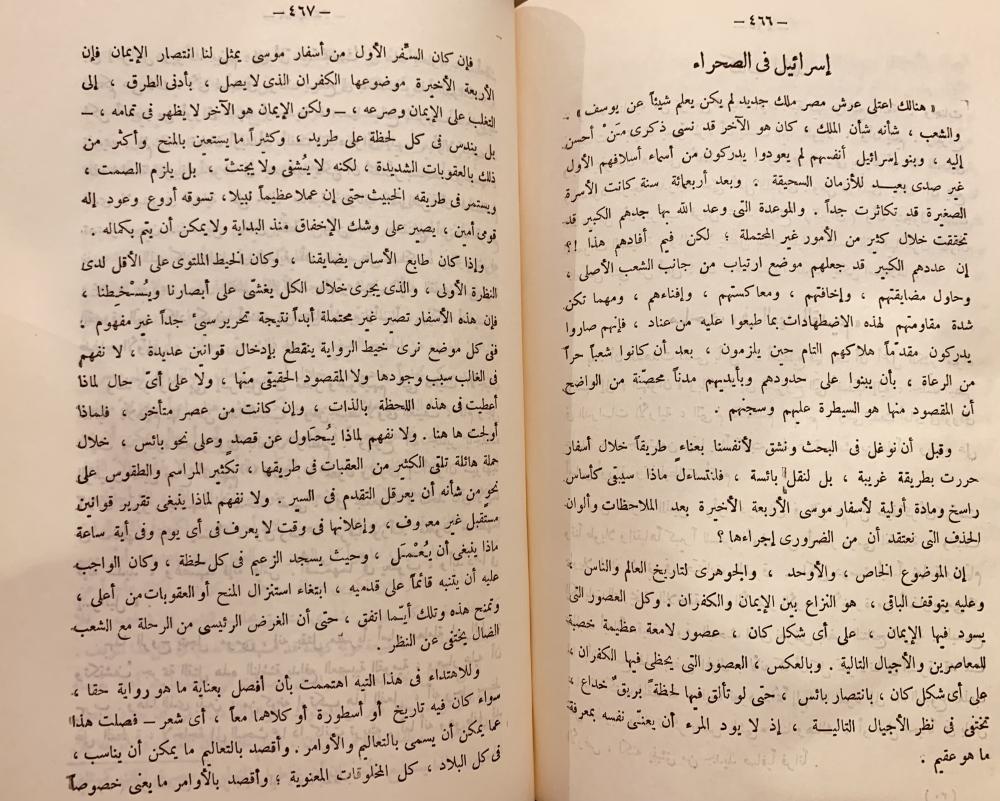 — ٤٦٦ —
إسرائيل فى الصحراء
« هنالك اعتلى عرش مصر ملك جديد لم يكن يعلم شيئاً عن يوسف » .
والشعب ، شأنه شأن الملك ، كان هو الآخر قد نسى ذكرى مَنْ أحسن
إليه ، وبنو إسرائيل أنفسهم لم يعودوا يدركون من أسماء أسلافهم الأول
غير صدى بعيـد للأزمان السحيقة . وبعد أربعمائة سنة كانت الأسرة
الصغيرة قد تكاثرت جداً . والموعدة التى وعد الله بها جدهم الكبير قد
تحققت خلال كثير من الأمور غير المحتملة ؛ لكن فيم أفادهم هذا ؟!
إن عددهم الكبير قد جعلهم موضع ارتياب من جانب الشعب الأصلى ،
وحاول مضايقتهم ، وإخافتهم ، ومعاكستهم ، وإفناءهم ، ومهما تكن
شدة مقاومتهم لهذه الاضطهادات بما طبعوا عليه من عناد ، فإنهم صاروا
يدركون مقدّماً هلاكهم التام حين يلزمون ، بعد أن كانوا شعباً حراً
من الرعاة ، بأن يبنوا على حدودهم وبأيديهم مدناً محصّنة من الواضح
أن المقصود منها هو السيطرة عليهم وسجنهم .
وقبل أن نوغل فى البحث ونشق لأنفسنا بعناء طريقاً خلال أسفار
حررت بطريقة غريبة ، بل لنقل بائسة ، فلنتساءل ماذا سيبقى كأساس
راسخ ومادة أولية لأسفار موسى الأربعة الأخيرة بعد الملاحظات وألوان
الحذف التى نعتقد أن من الضرورى إجراءها ؟
إن الموضوع الخاص ، والأوحد ، والجوهرى لتاريخ العالم والناس ،
وعليه يتوقف الباقى ، هو النزاع بين الإيمان والكفران . وكل العصور التى
يسود فيها الإيمان ، على أى شكل كان ، عصور لامعة عظيمة خصبة
للمعاصرين والأجيال التالية . وبالعكس ، العصور التى يحظى فيها الكفران ،
على أى شكل كان ، بانتصار بائس ، حتى لو تألق فيها لحظةً بريقٌ خداع ،
تختفى فى نظر الأجيال التاليـــة ، إذ لا يود المرء أن يعنّى نفسه بمعرفة
ما هو عقيم .
— ٤٦٧ —
فإن كان السِّفر الأول من أسفار موسى يمثل لنا انتصار الإيمان فإن
الأربعة الأخيرة موضوعها الكفران الذى لا يصل ، بأدنى الطرق ، إلى
التغلب على الإيمان وصرعه ، — ولكن الإيمان هو الآخر لا يظهر فى تمامه ، —
بل يندس فى كل لحظة على طريد ، وكثيراً ما يستعين بالمنح وأكثر من
ذلك بالعقوبات الشديدة ، لكنه لا يُشفى ولا يجتثّ ، بل يلزم الصمت ،
ويستمر فى طريقه الخبيث حتى إن عملا عظيماً نبيلا ، تسوقه أروع وعود إله
قومى أمين ، يصير على وشك الإخفاق منذ البداية ولا يمكن أن يتم بكماله .
وإذا كان طابع الأساس يضايقنا ، وكان الخيط الملتوى على الأقل لدى
النظرة الأولى ، والذى يجرى خلال الكل يغشّى على أبصارنا ويُسْخطنا ،
فإن هذه الأسفار تصير غير محتملة أبداً نتيجة تحرير سىء جداً غير مفهوم ،
ففى كل موضع نرى خيط الرواية ينقطع بإدخال قوانين عديدة ، لا نفهم
فى الغالب سبب وجودها ولا المقصود الحقيقى منها ، ولا على أىّ حال لماذا
أعطيت فى هذه اللحظة بالذات ، وإن كانت من عصر متأخر ، فلماذا
أولجت ها هنا . ولا نفهم لماذا يُـحَاول عن قصد وعلى نحو بائس ، خلال
حملة هائلة تلقى الكثير من العقبات فى طريقها ، تكثير المراسم والطقوس على
نحوٍ من شأنه أن يعرقل التقدم فى السير . ولا نفهم لماذا ينبغى تقرير قوانين
مستقبل غير معروف ، وإعلانها فى وقت لا يعرف فى أى يوم وفى أية ساعة
ماذا ينبغى أن يُعْـمَل ، وحيث يسجد الزعيم فى كل لحظة ، وكان الواجب
عليه أن يتنبه قائماً على قدميه ، ابتغاء استنزال المنح أو العقوبات من أعلى ،
وتمنح هذه وتلك أيّـما اتفق ، حتى أن الغرض الرئيسى من الرحلة مع الشعب
الضال يختفى عن النظر .
وللاهتداء فى هذا التيه اهتممت بأن أفصل بعناية ما هو رواية حقا ،
سواء كان فيه تاريخ أو أسطورة أو كلاهما معاً ، أى شعر — فصلت هذا
عما يمكن أن يسمى بالتعاليم والأوامر . وأقصد بالتعاليم ما يمكن أن يناسب ،
فى كل البلاد ، كل المخلوقات المعنوية ؛ وأقصد بالأوامر ما يعنى خصوصاً